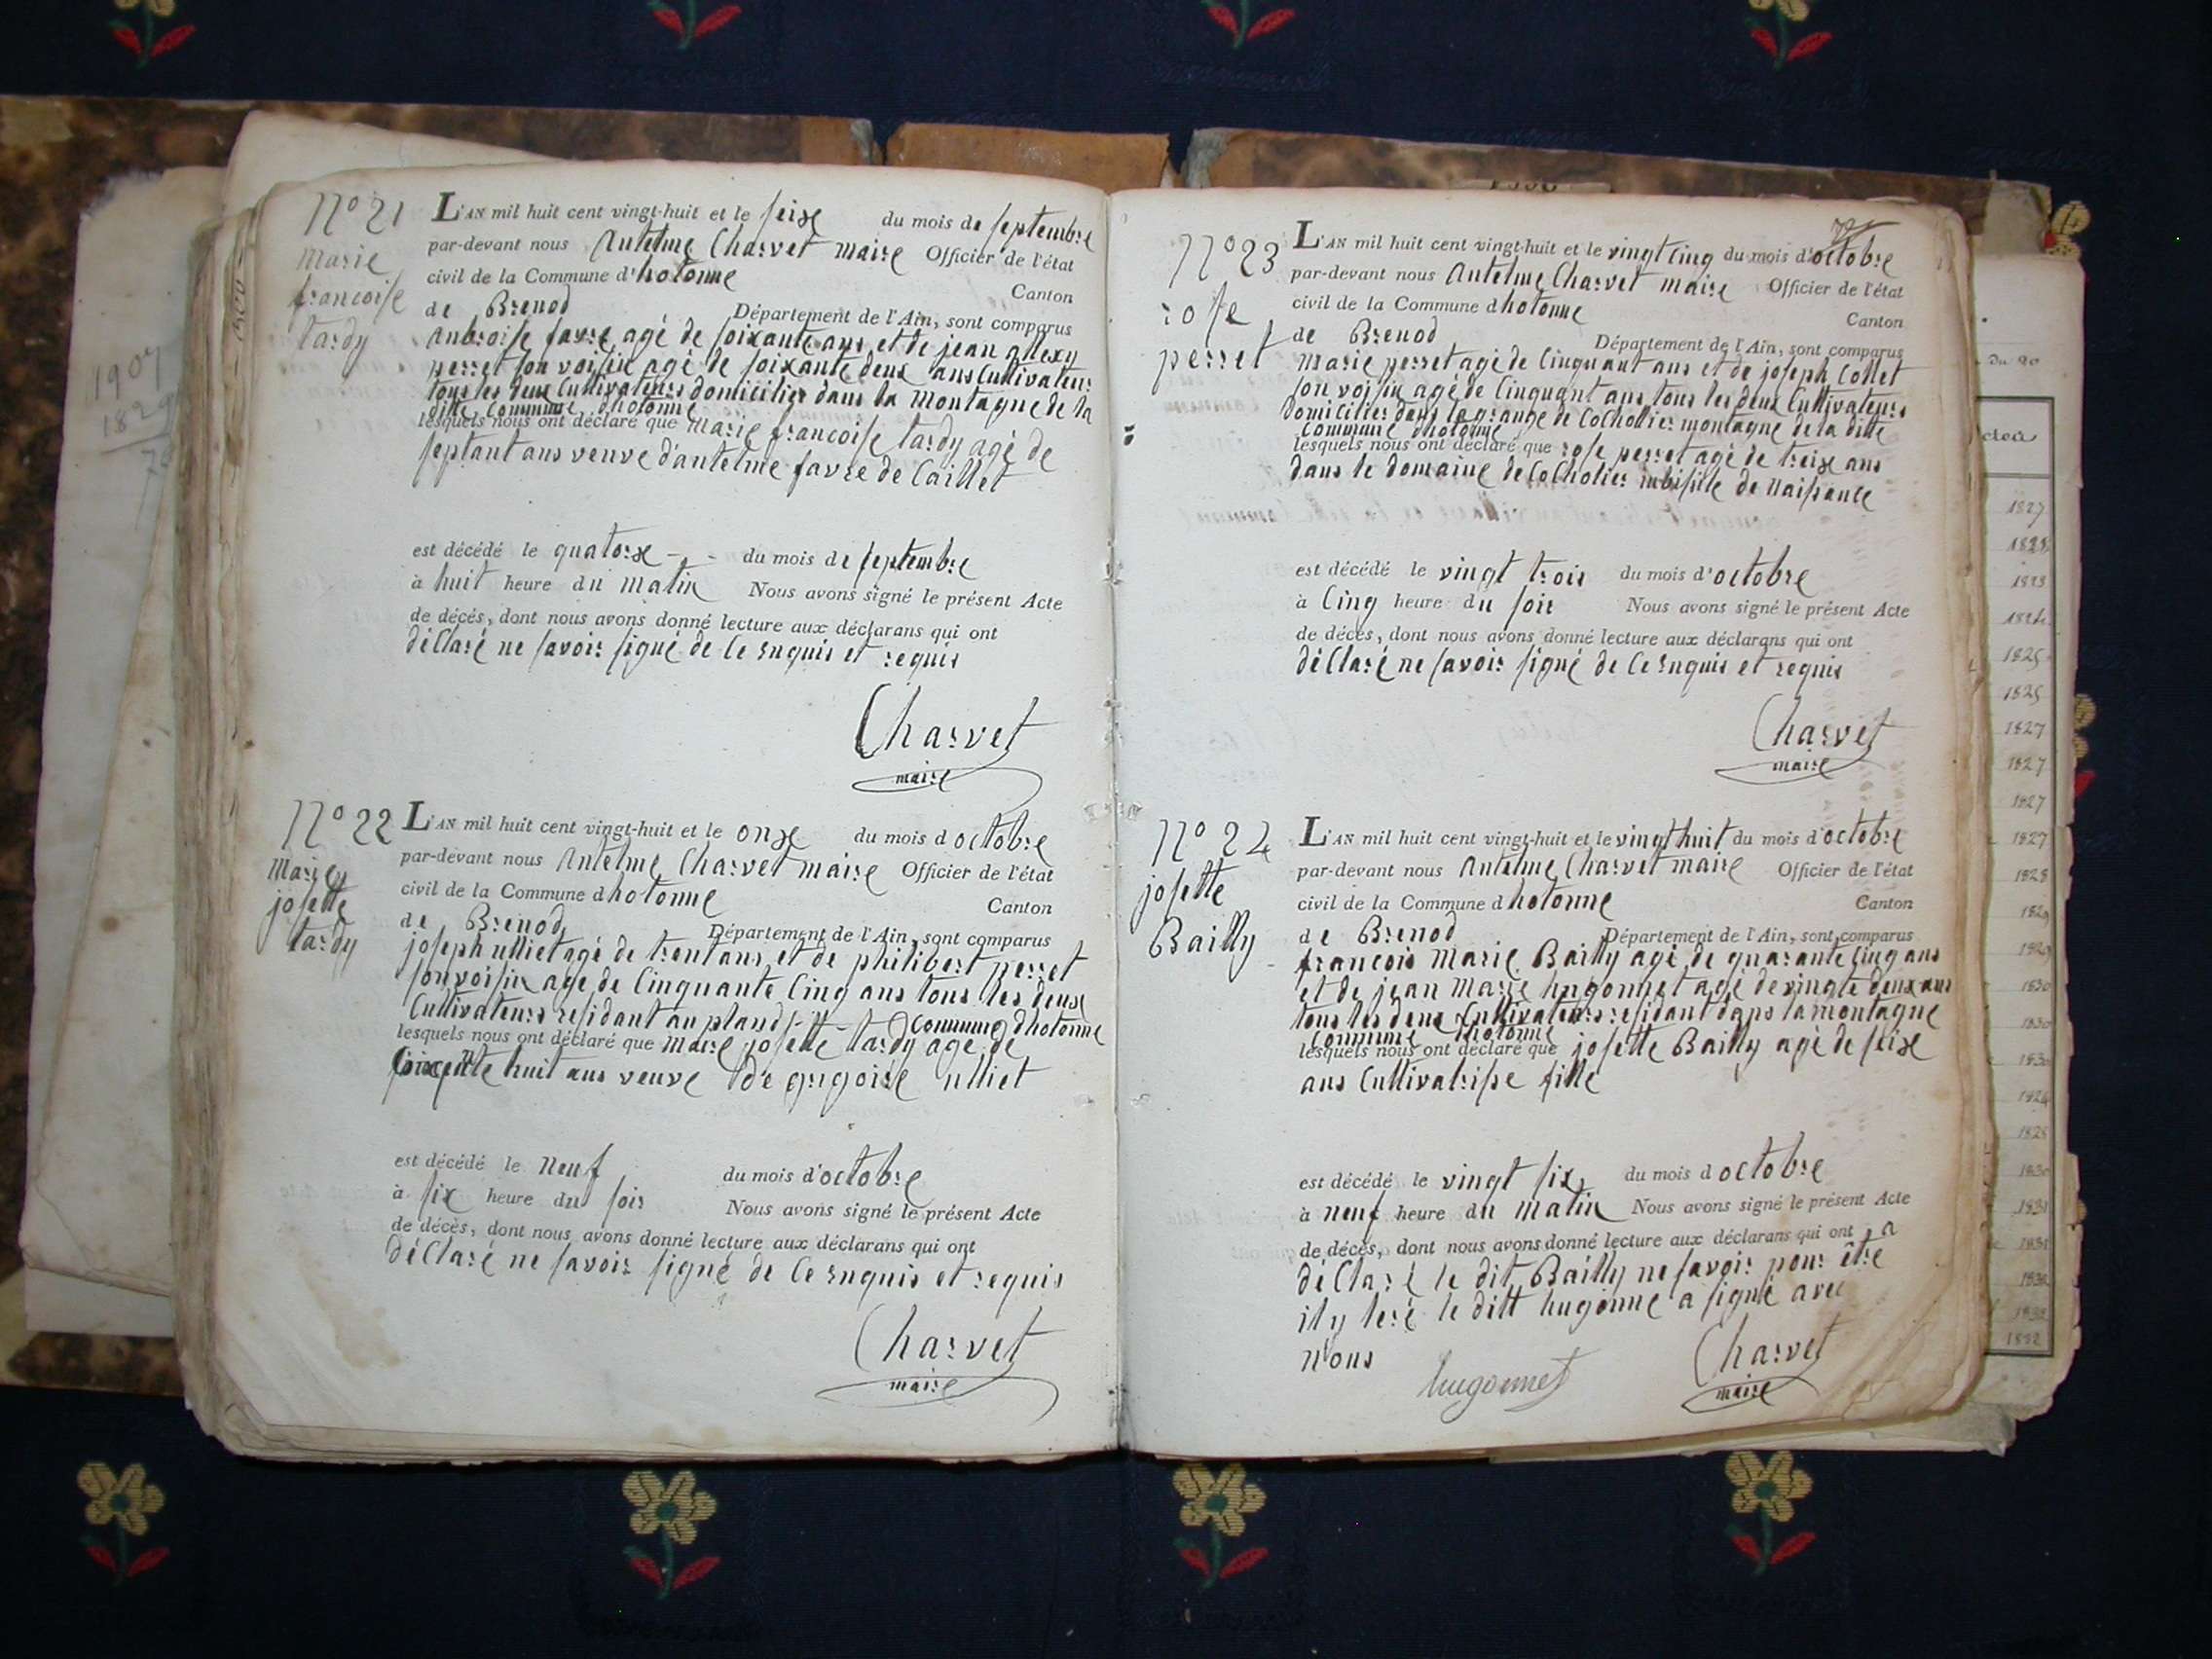 N° 21
Marie
francoise
tardy
L'AN mil huit cent vingt-huit et le seize du mois de septembre
par-devant nous Antelme Charvet maire Officier de l'état
civil de la Commune d'hotonne Canton
de Brenod Département de l'Ain, sont comparus
Anbroise favre agé de soixante ans et de jean allexy
perret son voisin agé de soixante deux ans Cultivateurs
tous les deux Cultivateurs domiciliés dans la Montagne de la
ditte Commune d'hotonne
lesquels nous ont déclaré que Marie francoise tardy agé de
septant ans veuve d'antelme favre de Caillet
est décédé le quatorze du mois de septembre
à huit heure du matin Nous avons signé le présent Acte
de décés, dont nous avons donné lecture aux déclarans qui ont
déClaré ne savoir signé de Ce enquis et requis
Charvet
maire
N° 22
Marie
josette
tardy
L'AN mil huit cent vingt-huit et le onze du mois d octobre
par-devant nous Antelme Charvet maire Officier de l'état
civil de la Commune d hotonne Canton
de Brenod Département de l'Ain, sont comparus
joseph ulliet agé de trent ans et de philibert perret
son voisin agé de Cinquante Cinq ans tous les deux
Cultivateurs residant au Commune d'hotonne
lesquels nous ont déclaré que Marie josette tardy agé de
huit ans veuve de grigoire ulliet
est décédé le neuf du mois d'octobre
à six heure du soir Nous avons signé le présent Acte
de décès, dont nous avons donné lecture aux déclarans qui ont
déClaré ne savoir signé de Ce enquis et requis
Charvet
maire
N° 23
rose
perret
L'AN mil huit cent vingt-huit et le vingt Cinq du mois d'octobre
par-devant nous Antelme Charvet maire Officier de l'état
civil de la Commune d hotonne Canton
de Brenod Département de l'Ain, sont comparus
Marie perret agé de Cinquant ans et de joseph Collet
son voisin agé de Cinquant ans tous les deux Cultivateurs
domiciliés dans la grange de Cochollier montagne de la ditte
Commune d'hotonne
lesquels nous ont déclaré que rose perret agé de treize ans
dans le domaine de Cocholier inbisile de naissance
est décédé le vingt trois du mois d'octobre
à Cinq heure du soir Nous avons signé le présent Acte
de décés, dont nous avons donné lecture aux déclarans qui ont
déClaré ne savoir signé de Ce enquis et requis
Charvet
maire
N° 24
josette
Bailly
L'AN mil huit cent vingt-huit et le vingt huit du mois d'octobre
par-devant nous Antelme Charvet maire Officier de l'état
civil de la Commune d hotonne Canton
de Brenod Département de l'Ain, sont comparus
francois Marie Bailly agé de quarante Cinq ans
et de jean Marie hugonnet agé de vingte deux ans
tous les deux Cultivateurs residant dans la montagne
Commune d'hotonne
lesquels nous ont déclaré que josette Bailly agé de seize
ans Cultivatrisse fille
est décédé le vingt six du mois d octobre
à neuf heure du matin Nous avons signé le présent Acte
de décés, dont nous avons donné lecture aux déclarans qui ont a
déClaré le dit Bailly ne savoir pour être
ily teré le ditt hugonne a signé avec
nous
hugonnet
Charvet
maire
1907
1829
1827
1828
1823
1824
1825
1825
1827
1827
1827
1827
1828
1829
1829
1830
1830
1830
1824
1825
1830
1831
1831
1832
1832